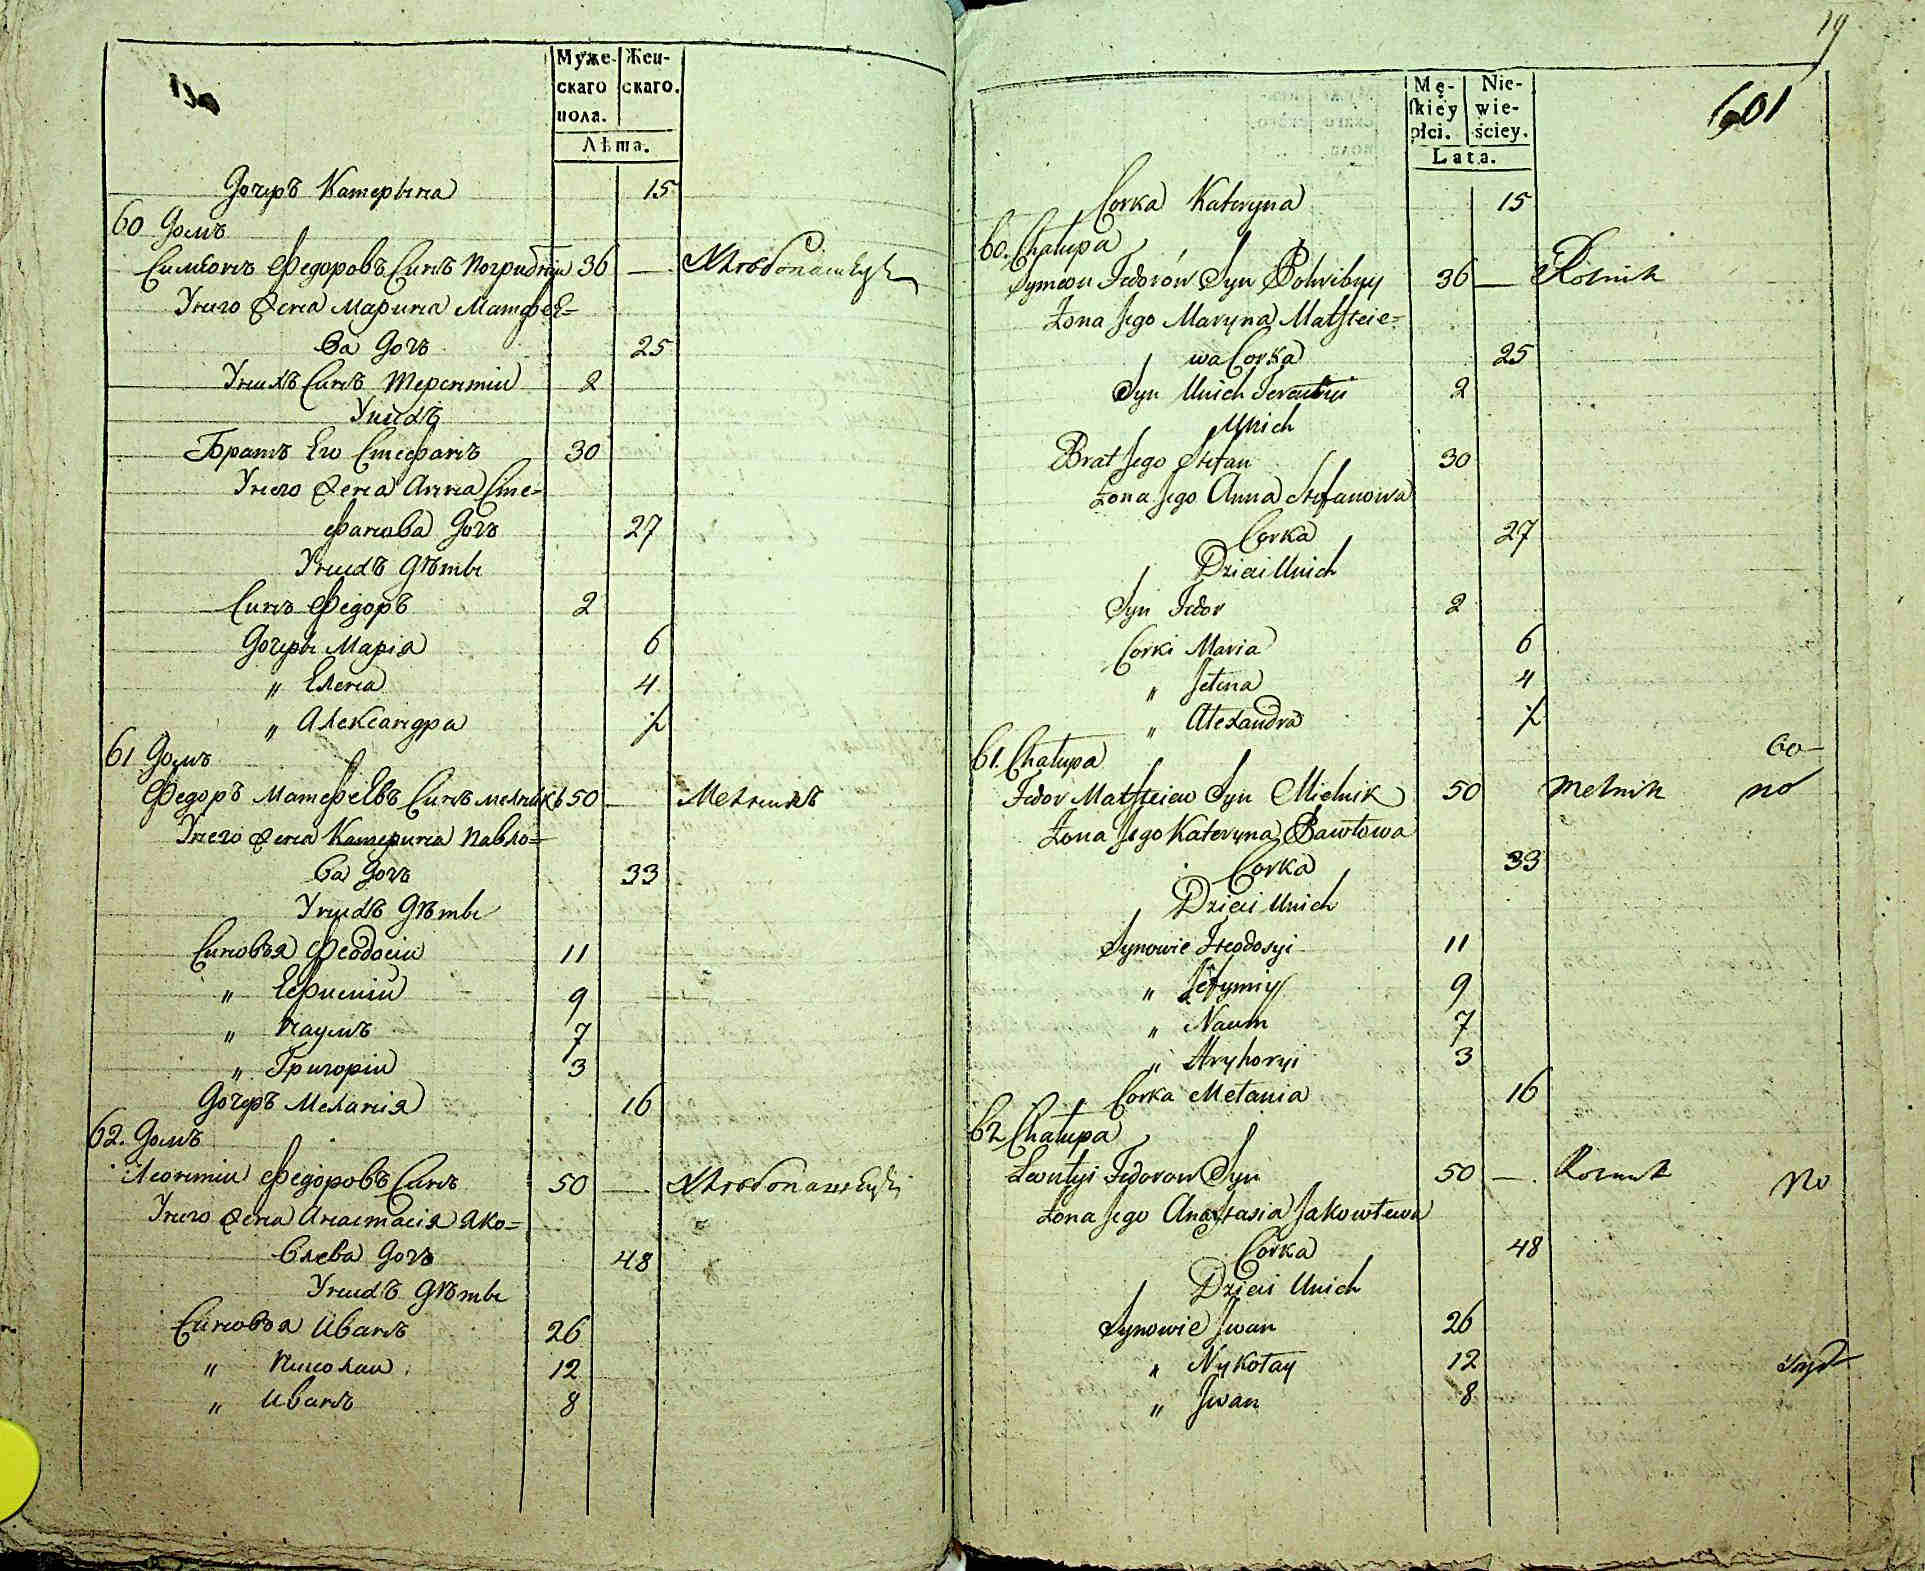 Муже- Жен-
скаго скаго.
пола.
Лѣта.
Дочерь Катерына 15
60 Домъ
Симеонъ Федоровъ Сынъ Погрибный 36 — Хлѣбопашецъ
У него Жена Марина Матфее=
ва Дочь 25
У нихъ Сынъ Терентий 2
У нихъ
Братъ Его Стефанъ 30
У него Жена Анна Сте=
фанова Дочь 27
У нихъ Дѣти
Сынъ Федоръ 2
Дочеры Марія 6
„ Елена 4
„ Александра ½
61 Домъ
Федоръ Матфеевъ Сынъ Мелникъ 50 — Мелникъ
У него Жена Катерина Павло=
ва Дочь 33
У нихъ Дѣти
Сыновья Феодосии 11
„ Ефимии 9
„ Наумъ 7
„ Григории 3
Дочерь Меланія 16
62. Домъ
Леонтии Федоровъ Сынъ 50 — Хлѣбопашецъ
У него Жена Анастасія Яко=
влева Дочь 48
У нихъ Дѣти
Сыновья Иванъ 26
„ Николаи 12
„ Иванъ 8
19
601
Mę- Nie-
skiéy wie-
płci. ściey.
Lata.
Corka Kateryna 15
60. Chałupa
Symeon Fedorów Syn Pohribny 36 — Rolnik
Żona Jego Maryna Matfieie=
wa Corka 25
Syn Unich Terentyi 2
Unich
Brat Jego Stefan 30
Żona Jego Anna Stefanowa
Corka 27
Dzieci Unich
Syn Fedor 2
Corki Maria 6
„ Jełena 4
„ Alexandra ½
61. Chałupa
Fedor Matfieiew Syn Mielnik 50 Melnik no
Żona Jego Kateryna Pawłowa
Corka 33
Dzieci Unich
Synowie Feodosyi 11
„ Jefymiy 9
„ Naum 7
„ Hryhoryi 3
Corka Mełania 16
62 Chałupa
Lewntyi Fedorow Syn 50 — Rolnik No
Żona Jego Anastasia Jakowlewa
Corka 48
Dzieci Unich
Synowie Jwan 26
„ Nykołay 12
„ Jwan 8